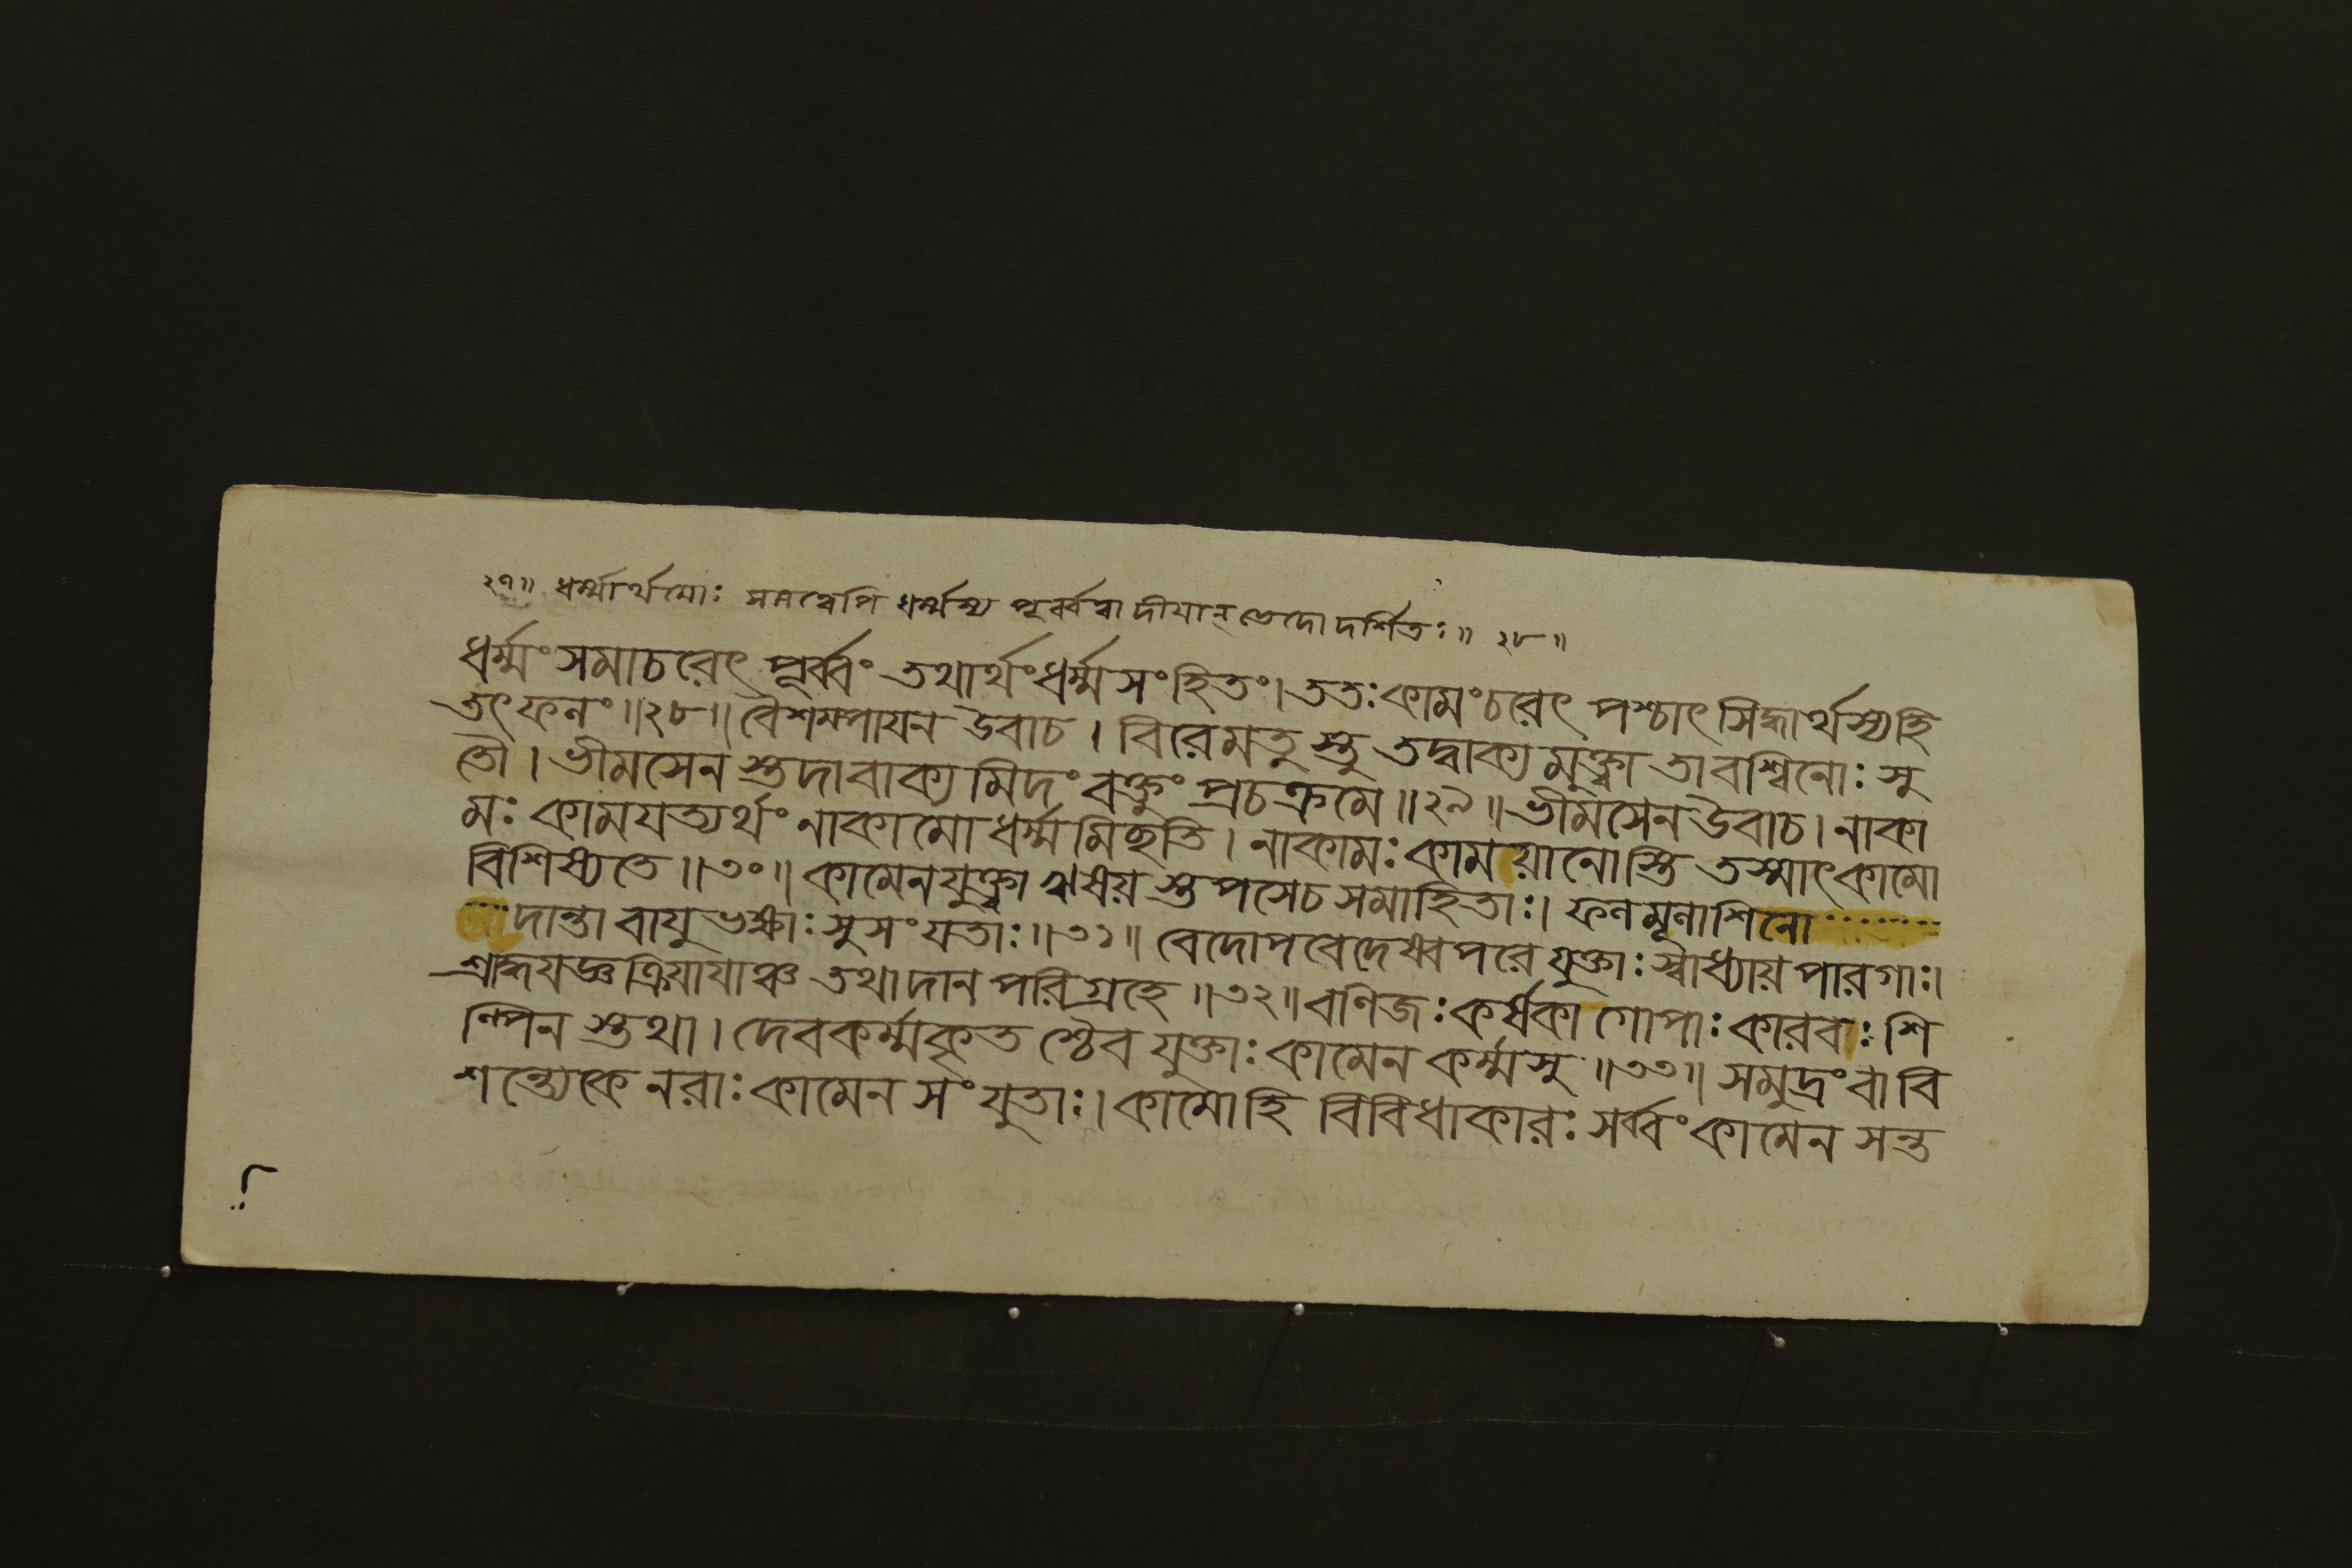 ২৭॥ ধর্ম্মার্থয়োঃ সমত্বেপি ধর্ম্মস্য পূর্ব্বত্বাদীযান্ ভেদো দর্শিতঃ॥ ২৮॥
ধর্ম্মং সমাচরেৎ পূর্ব্বং তথার্থং ধর্ম্মসংহিতং। ততঃ কামং চরেৎ পশ্চাৎ সিদ্ধার্থস্যহি
তৎফলং॥২৮॥ বৈশম্পাযন উবাচ। বিরেমতুস্তু তদ্বাক্যমুক্ত্বা তাবশ্বিনোঃ সু
তৌ। ভীমসেনস্তদাবাক্যমিদং বক্তুং প্রচক্রমে॥২৯॥ ভীমসেন উবাচ। নাকা
মঃ কামযত্যর্থং নাকামো ধর্ম্মমিছতি। নাকামঃ কাময়ানোস্তি তস্মাৎকামো
বিশিষ্যতে॥৩০॥ কামেনযুক্ত্বা ঋষয়স্তপসেচ সমাহিতাঃ। ফলমূলাশিনো
দান্তা বাযুভক্ষাঃ সুসংযতাঃ॥৩১॥ বেদোপবেদেষ্বপরে যুক্তাঃ স্বাধ্যায়পারগাঃ।
শ্রাদ্ধযজ্ঞক্রিয়াযাঞ্চ তথাদানপরিগ্রহে॥৩২॥ বণিজঃ কর্ষকা গোপাঃ কারবাঃ শি
ল্পিনস্তথা। দেবকর্ম্মকৃতশ্চৈব যুক্তাঃ কামেন কর্ম্মসু॥৩৩॥ সমুদ্রং বা বি
শন্ত্যেকে নরাঃ কামেন সংযুতাঃ। কামোহি বিবিধাকারঃ সর্ব্বং কামেন সন্ত